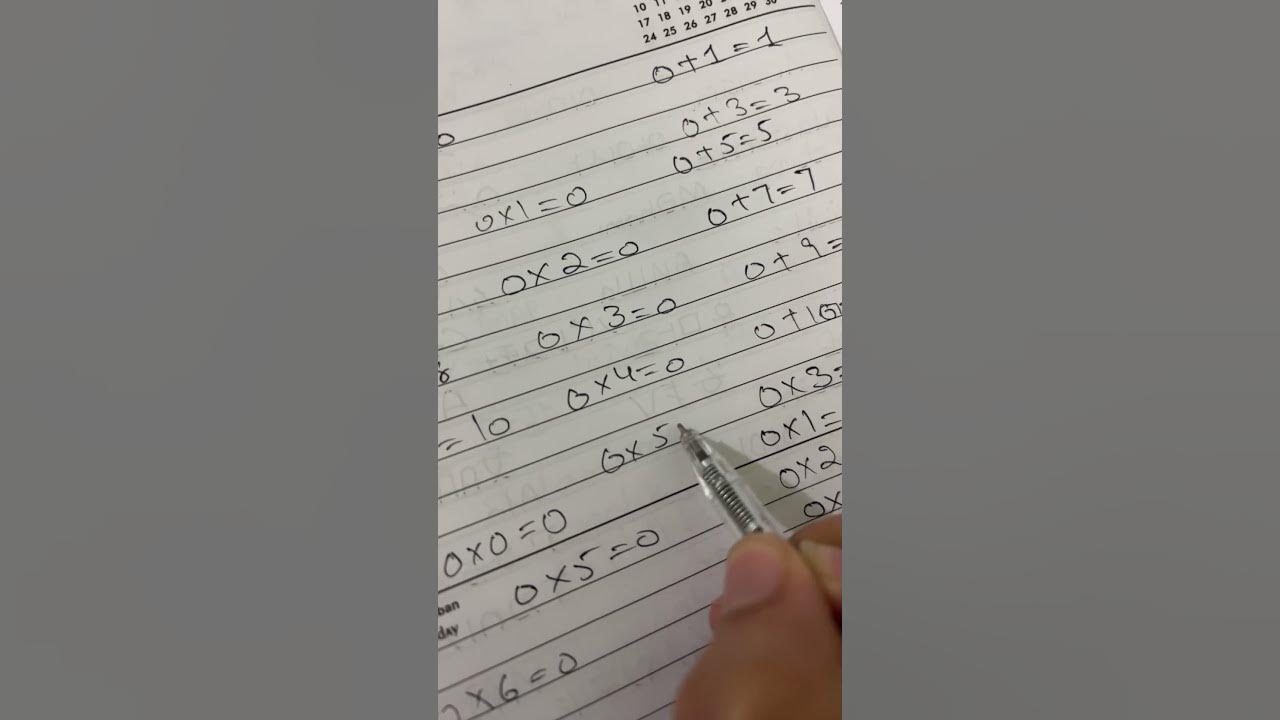 10 11
17 18 19 20
24 25 26 27 28 29 30
0+1=1
0+3=3
0+5=5
0x1=0
0+7=7
0x2=0
0+9=
0x3=0
0+10
0x4=0
0x3=
=10
0x1=
0x5
0x2
0x
0x0=0
0x5=0
ban
day
x6=0